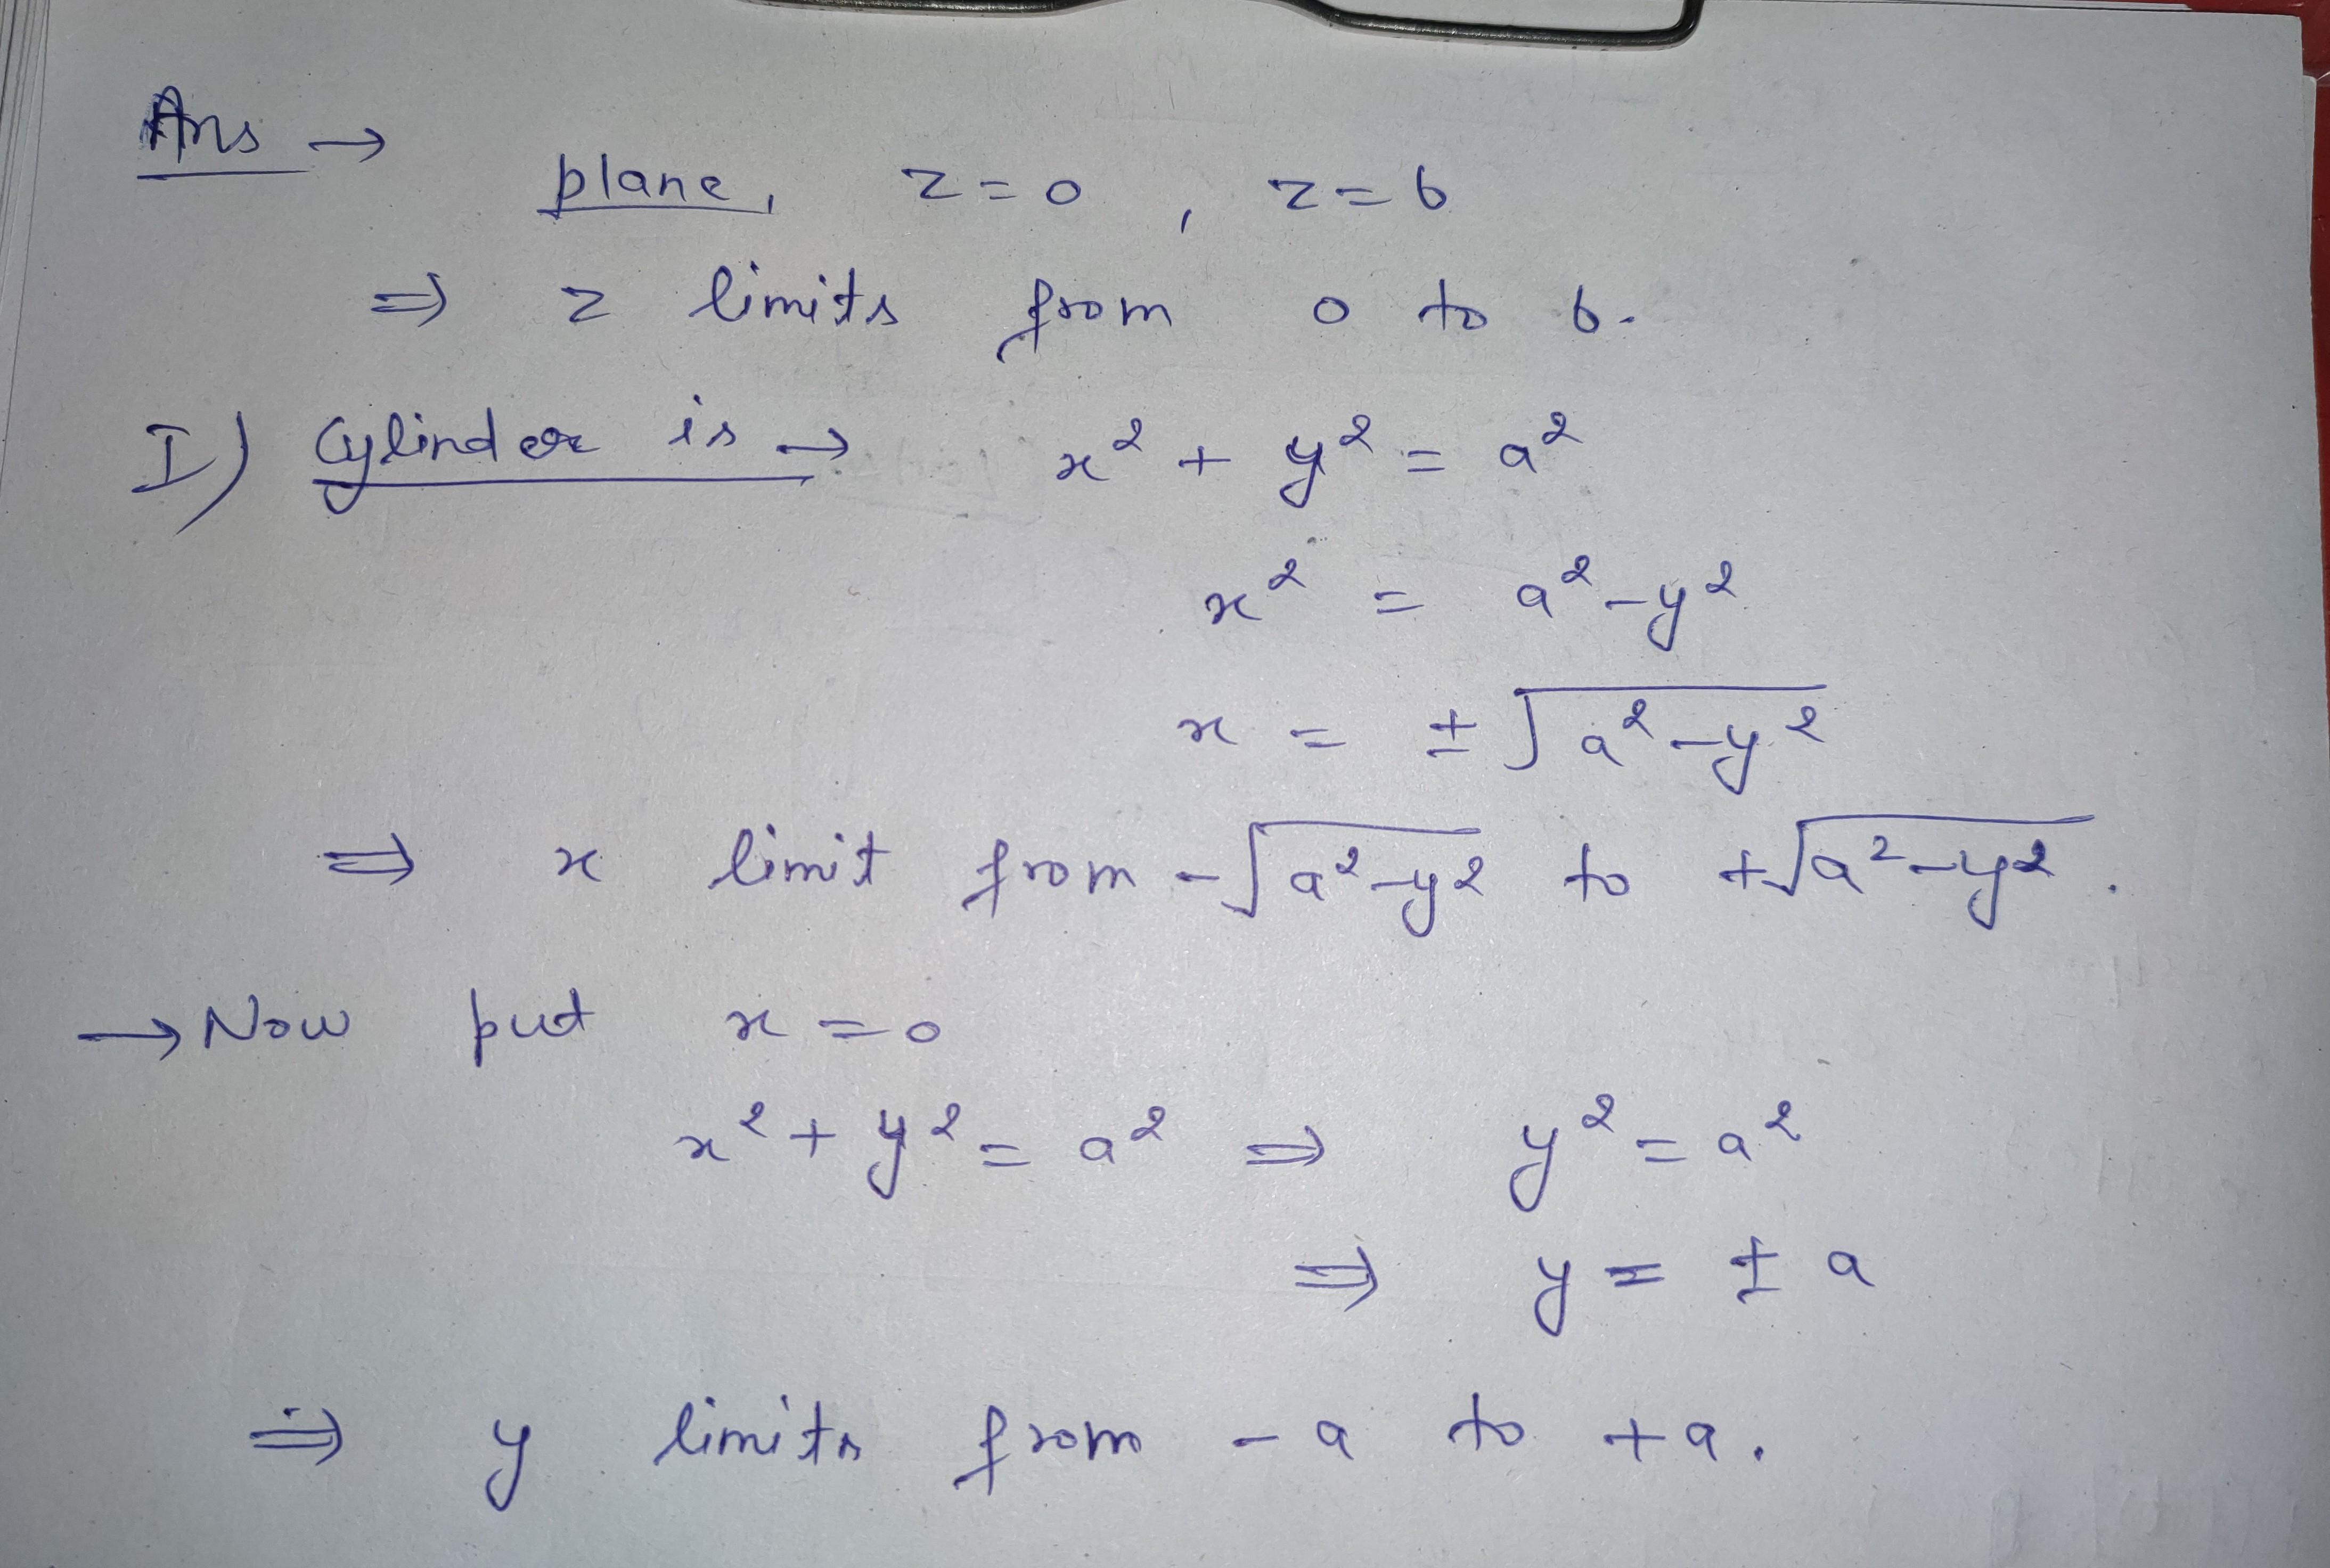 Ans →
plane, z=0 , z=b
⇒ z limits from 0 to b.
I) Cylinder is → x² + y² = a²
x² = a²-y²
x = ± √a²-y²
⇒ x limit from -√a²-y² to +√a²-y² .
→ Now put x=0
x²+y²= a² ⇒ y²= a²
⇒ y = ± a
⇒ y limits from -a to +a.